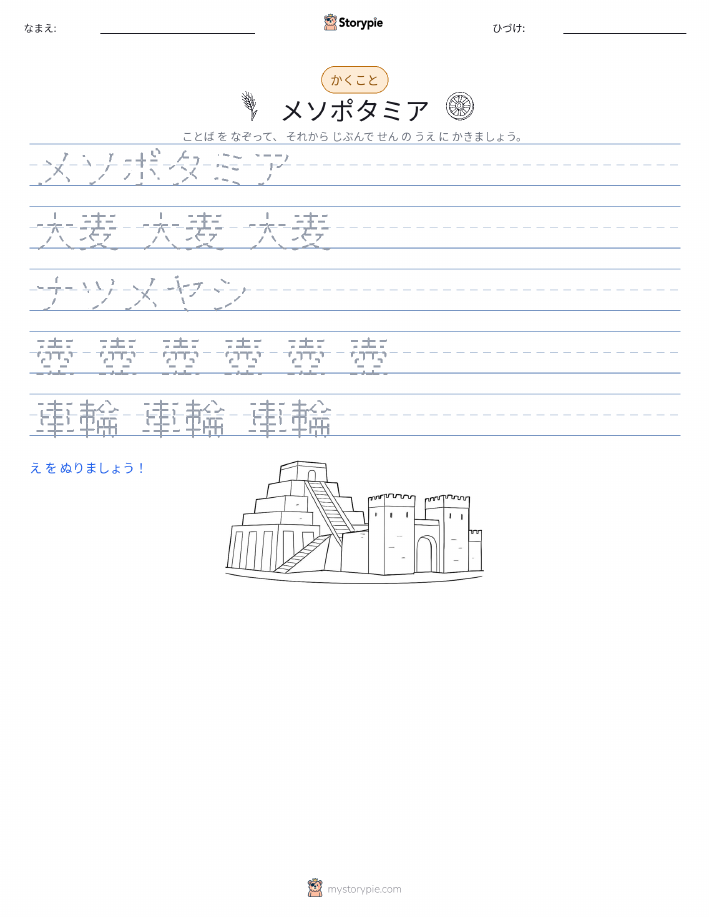 なまえ:
Storypie
ひづけ:
かくこと
メソポタミア
ことば を なぞって、 それから じぶんで せん の うえ に かきましょう。
メソポタミア
大麦 大麦 大麦
ナツメヤシ
壺 壺 壺 壺 壺 壺
車輪 車輪 車輪
え を ぬりましょう！
mystorypie.com